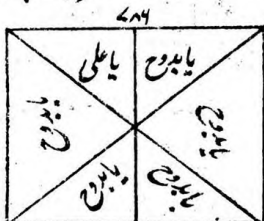 ۷۸۶
یا علی
یا بدوح
یا بدوح
یا بدوح
یا بدوح